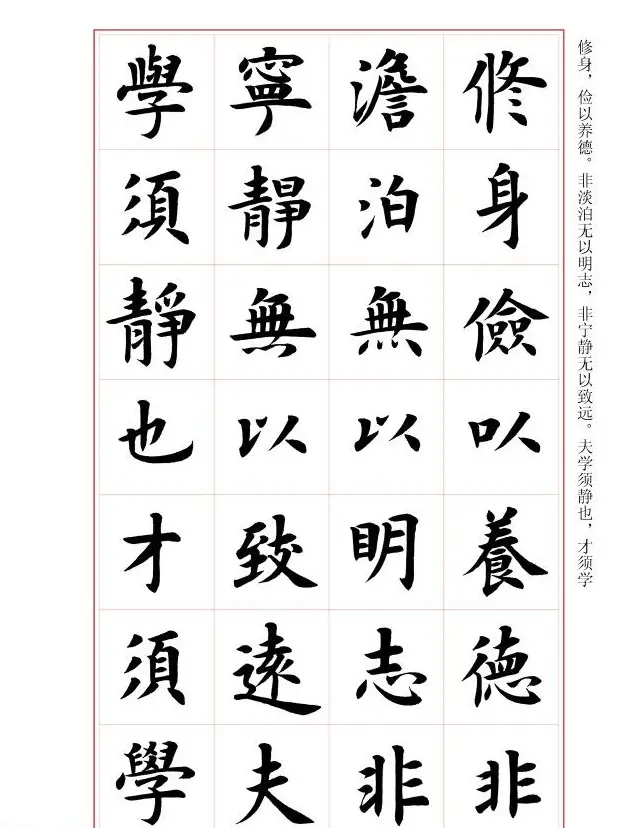 修身，俭以养德。非淡泊无以明志，非宁静无以致远。夫学须静也，才须学
修身儉以養德非
澹泊無以明志非
寧靜無以致遠夫
學須靜也才須學